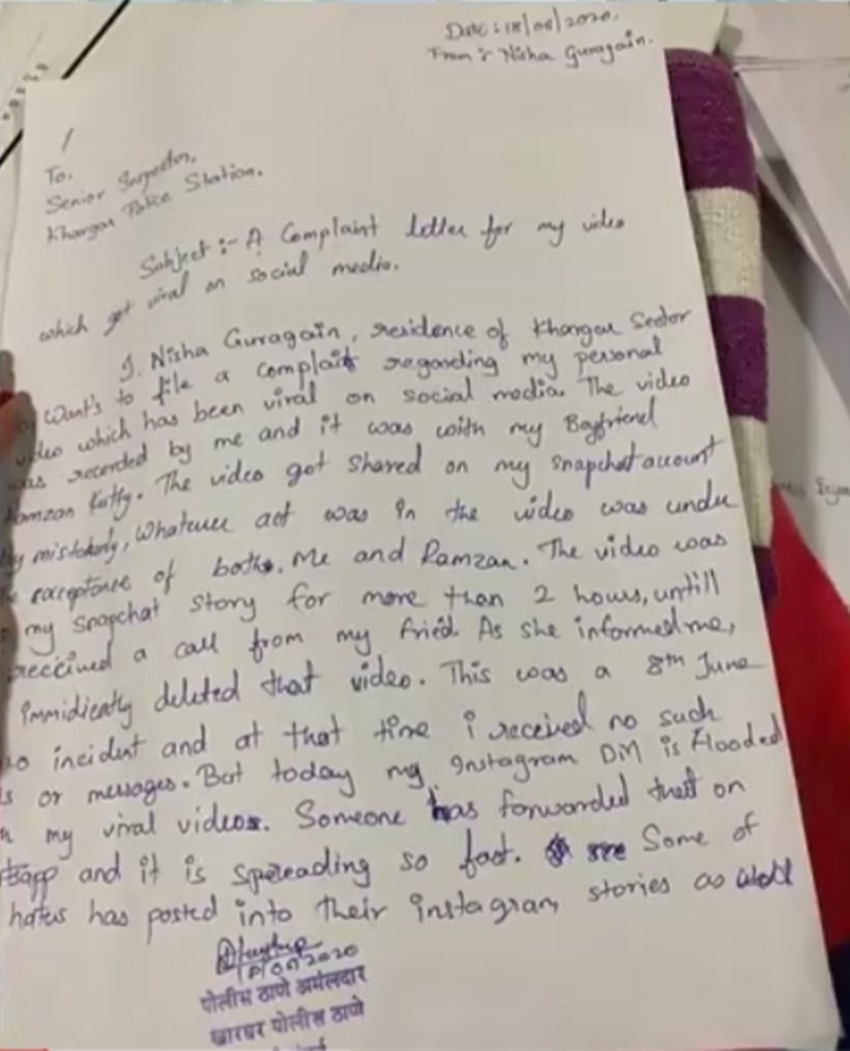 Date: 18/06/2020.
From :- Nisha Guragain.
To.
Senior Inspector,
Kharghar Police Station.
Subject :- A Complaint letter for my video
which got viral on social media.
I. Nisha Guragain, residence of Khargar Sector
Want's to file a complaint regarding my personal
video which has been viral on social media. The video
was recorded by me and it was with my Boyfriend
Ramzan Kutty. The video got shared on my snapchat account
by mistakenly, Whatever act was in the video was under
the exceptance of both. Me and Ramzan. The video was
my snapchat story for more than 2 hours, untill
received a call from my fried. As she informed me,
immidiently deleted that video. This was a 8th June
incident and at that time i received no such
or messages. But today my Instagram DM is flooded
my viral videos. Someone has forwarded that on
and it is spereading so fast. Some of
haters has posted into their instagram stories as well
18/06/2020
पोलीस ठाणे अंमलदार
खारघर पोलीस ठाणे